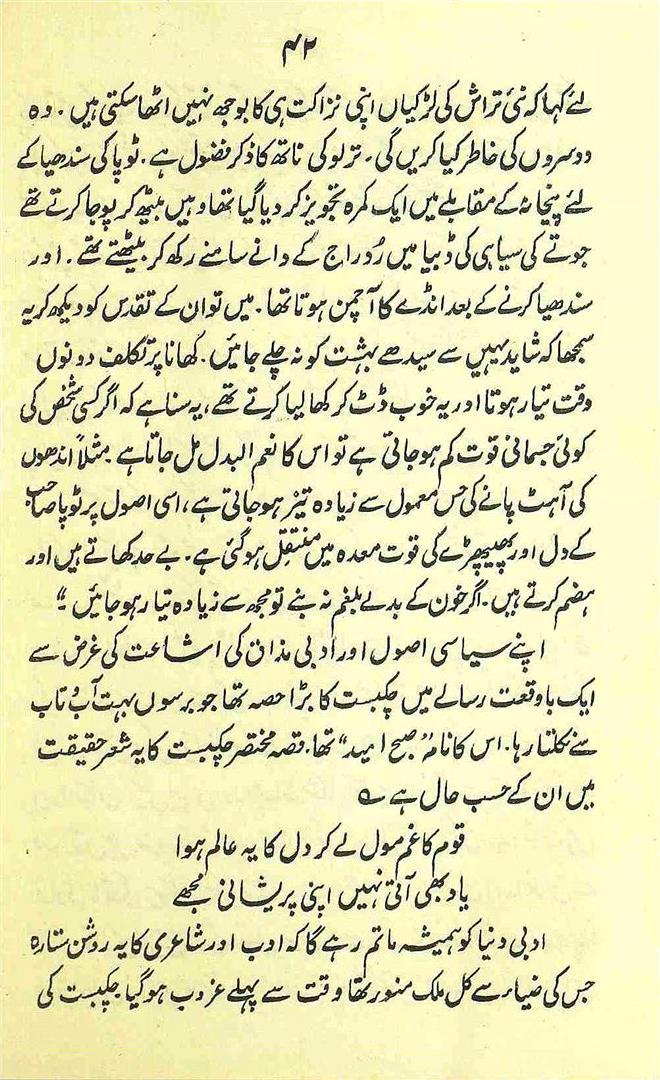 ۴۲
لئے کہا کہ نئی تراش کی لڑکیاں اپنی نزاکت ہی کا بوجھ نہیں اٹھا سکتی ہیں۔ وہ
دوسروں کی خاطر کیا کریں گی۔ ترلوکی ناتھ کا ذکر فضول ہے۔ ٹوپا کی سندھیا کے
لئے پنجانہ کے مقابلے میں ایک کمرہ تجویز کر دیا گیا تھا وہیں بیٹھ کر پوجا کرتے تھے
جوتے کی سیاہی کی ڈبیا میں رُدراج کے دانے سامنے رکھ کر بیٹھتے تھے۔ اور
سندھیا کرنے کے بعد انڈے کا آچمن ہوتا تھا۔ میں تو ان کے تقدس کو دیکھ کر یہ
سمجھا کہ شاید یہیں سے سیدھے بہشت کو نہ چلے جائیں۔ کھانا پر تکلف دونوں
وقت تیار ہوتا اور یہ خوب ڈٹ کر کھا لیا کرتے تھے، یہ سنا ہے کہ اگر کسی شخص کی
کوئی جسمانی قوت کم ہو جاتی ہے تو اس کا نعم البدل مل جاتا ہے۔ مثلاً اندھوں
کی آہٹ پانے کی حس معمول سے زیادہ تیز ہو جاتی ہے، اسی اصول پر ٹوپا صاحب
کے دل اور پھیپھڑے کی قوت معدہ میں منتقل ہو گئی ہے۔ بے حد کھاتے ہیں اور
ہضم کرتے ہیں۔ اگر خون کے بدلے بلغم نہ بنے تو مجھ سے زیادہ تیار ہو جائیں۔"
اپنے سیاسی اصول اور ادبی مذاق کی اشاعت کی غرض سے
ایک با وقعت رسالے میں چکبست کا بڑا حصہ تھا جو برسوں بہت آب و تاب
سے نکلتا رہا۔ اس کا نام "صبح امید" تھا۔ قصہ مختصر چکبست کا یہ شعر حقیقت
میں ان کے حسب حال ہے ؎
قوم کا غم مول لے کر دل کا یہ عالم ہوا
یاد بھی آتی نہیں اپنی پریشانی مجھے
ادبی دنیا کو ہمیشہ ماتم رہے گا کہ ادب اور شاعری کا یہ روشن ستارہ
جس کی ضیاء سے کل ملک منور تھا وقت سے پہلے غروب ہو گیا۔ چکبست کی